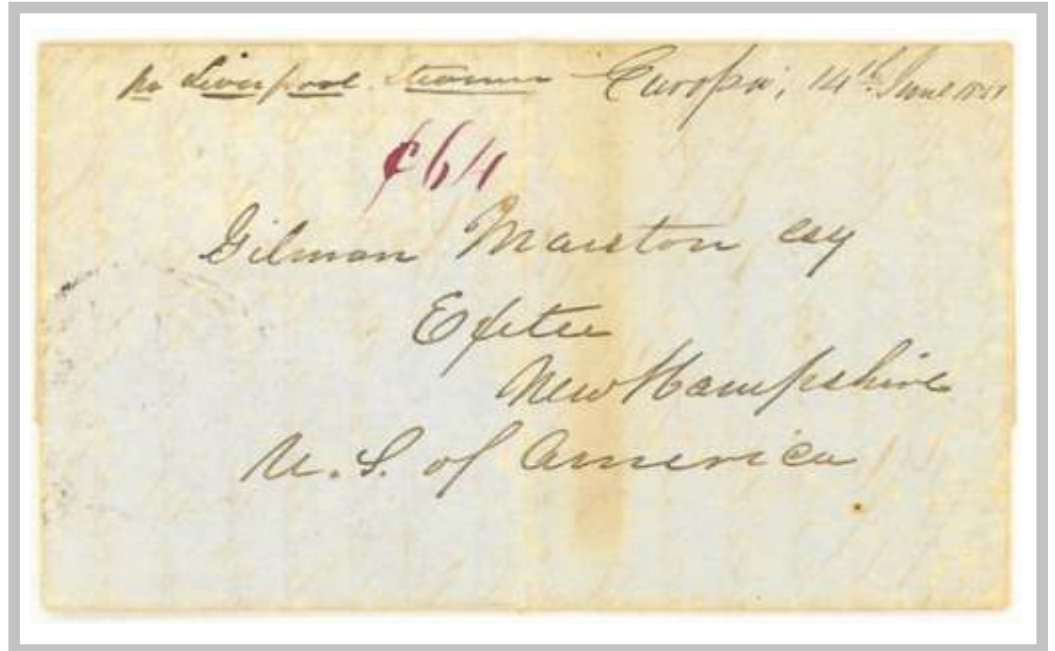 per Liverpool Steamer Europa; 14th June 1851
¢64
Gilman Marston Esq
Exeter
New Hampshire
U.S. of America